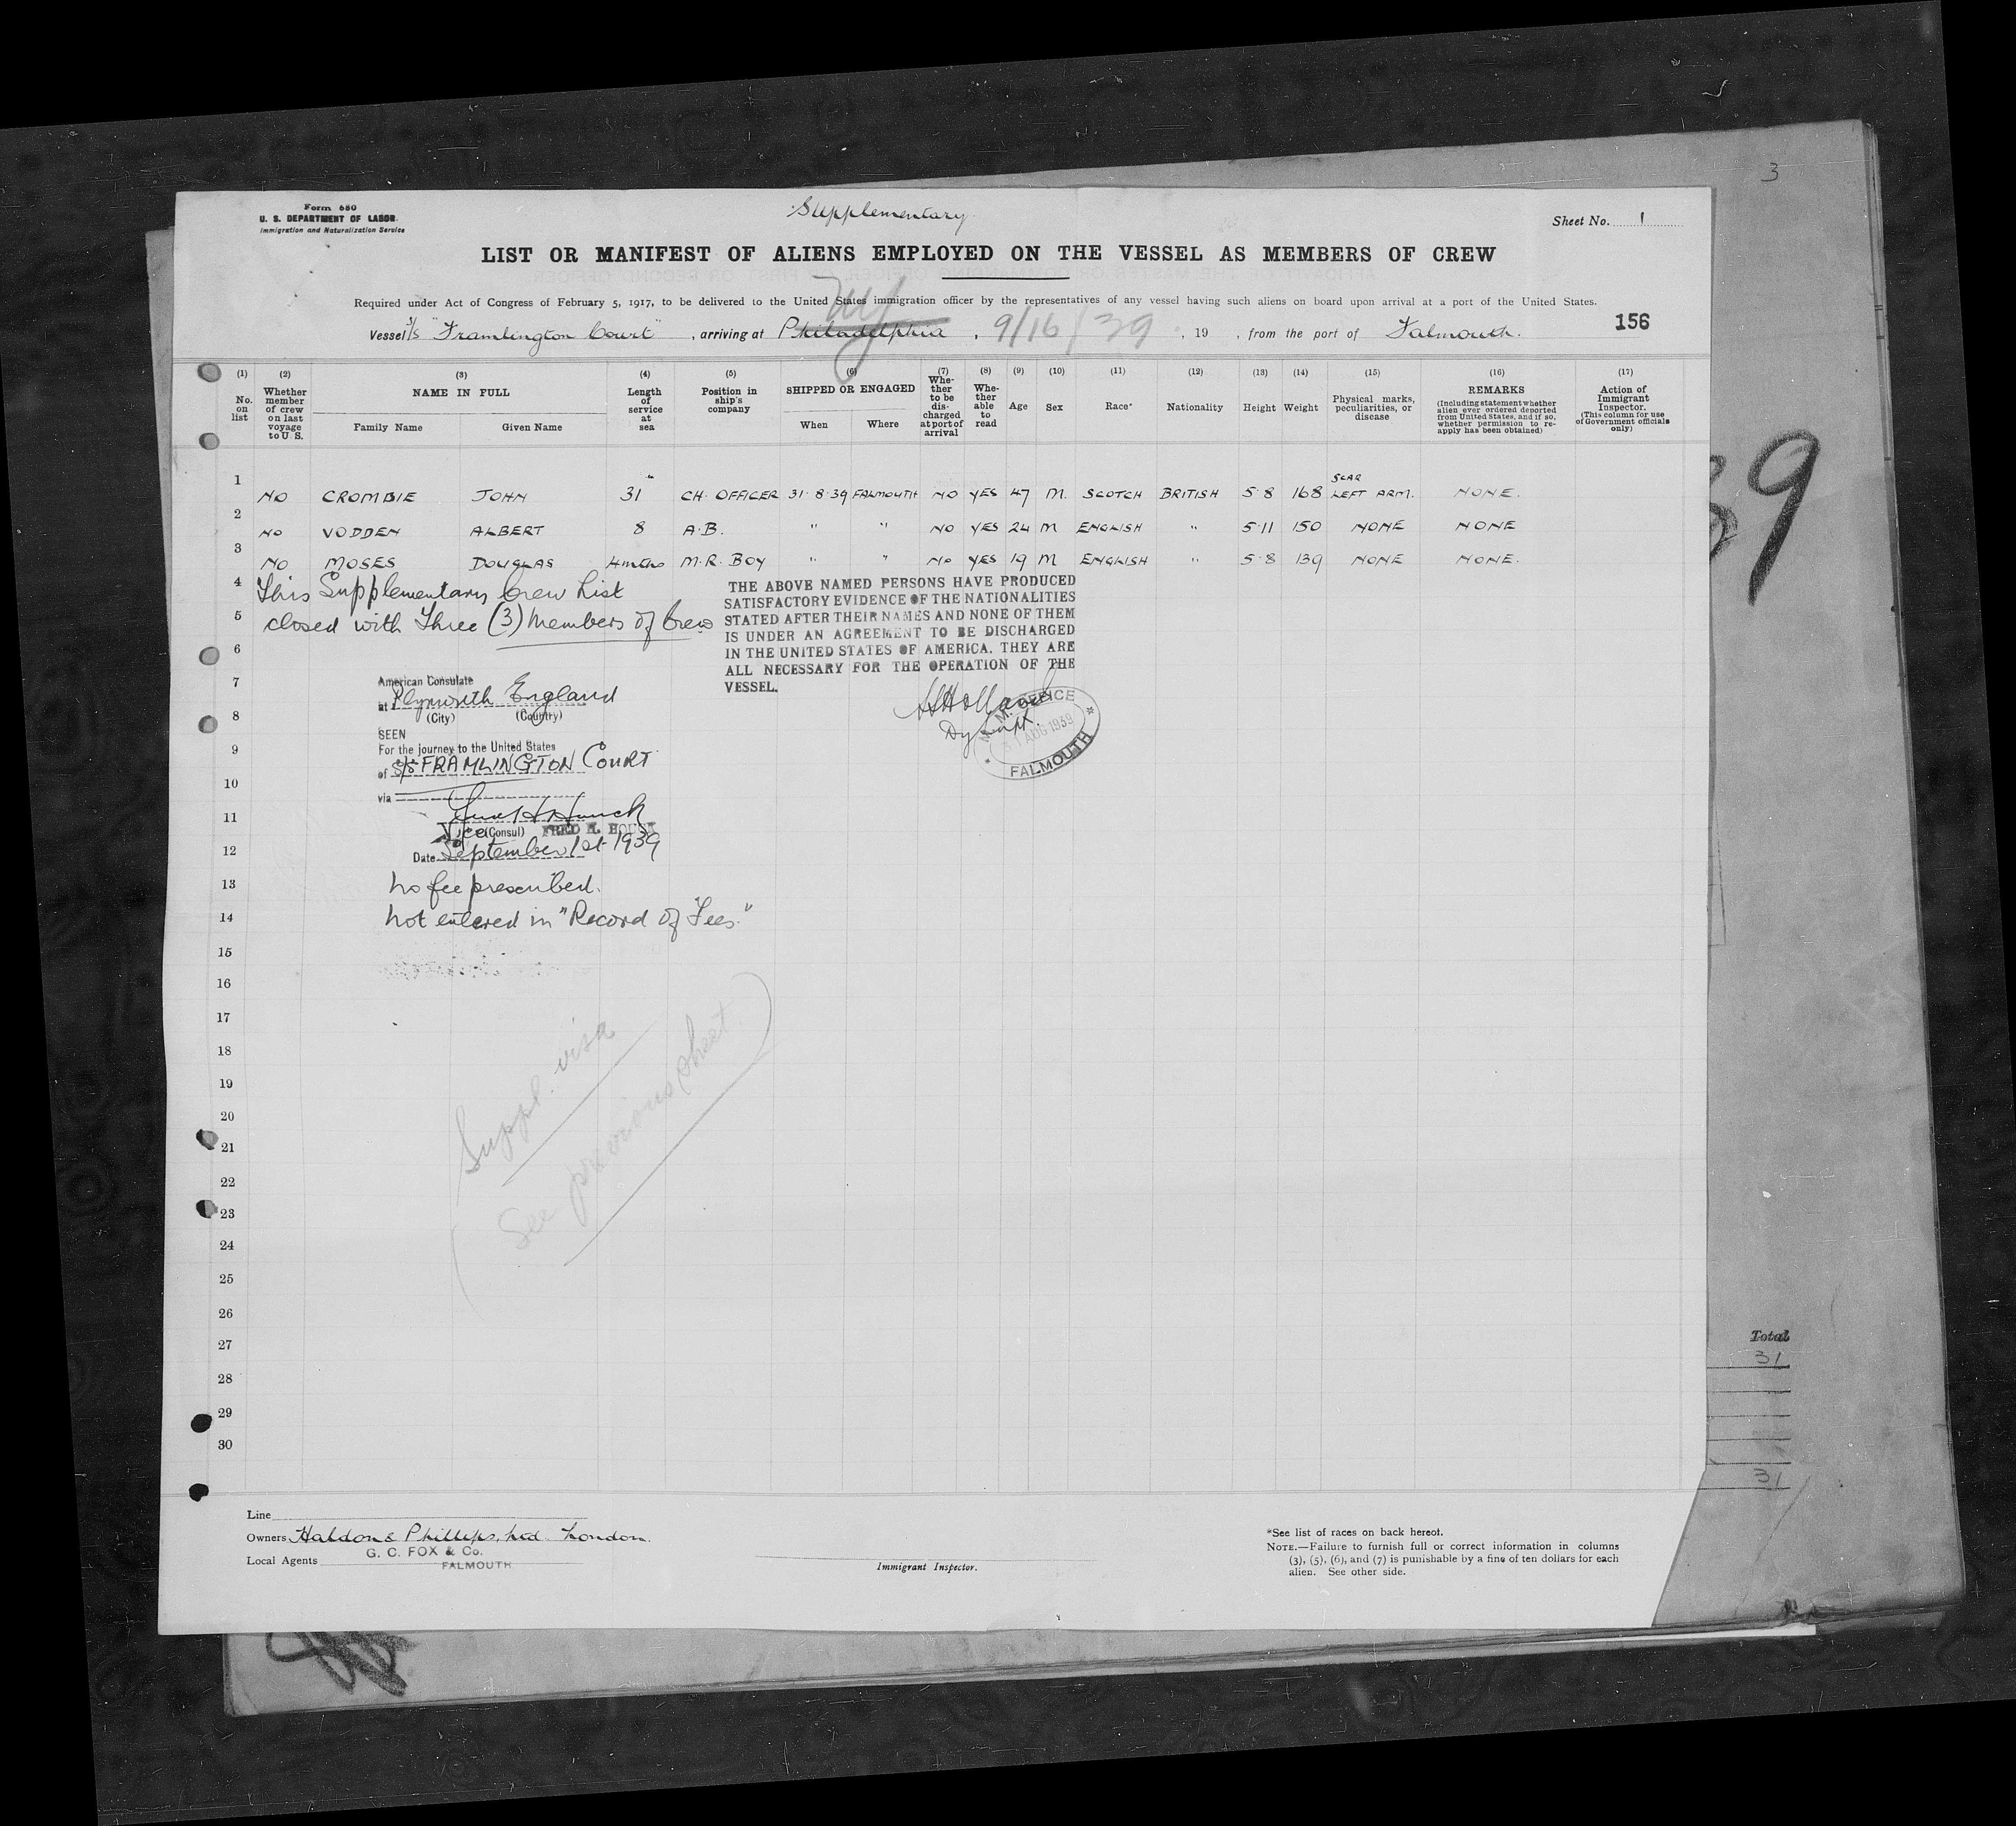 3
Form 680
U. S. DEPARTMENT OF LABOR
Immigration and Naturalization Service
Supplementary
Sheet No. 1
LIST OR MANIFEST OF ALIENS EMPLOYED ON THE VESSEL AS MEMBERS OF CREW
Required under Act of Congress of February 5, 1917, to be delivered to the United States immigration officer by the representatives of any vessel having such aliens on board upon arrival at a port of the United States.
NY
Vessel S/S "Framlington Court", arriving at Philadelphia, 9/16/39, 19 , from the port of Falmouth.
156
(1) (2) (3) (4) (5) (6) (7) (8) (9) (10) (11) (12) (13) (14) (15) (16) (17)
No. on list
Whether member of crew on last voyage to U. S.
NAME IN FULL
Family Name Given Name
Length of service at sea
Position in ship's company
SHIPPED OR ENGAGED
When Where
Whether to be discharged at port of arrival
Whether able to read
Age
Sex
Race*
Nationality
Height
Weight
Physical marks, peculiarities, or disease
REMARKS
(Including statement whether alien ever ordered deported from United States, and if so, whether permission to reapply has been obtained)
Action of Immigrant Inspector.
(This column for use of Government officials only)
1 NO CROMBIE JOHN 31 " CH. OFFICER 31·8·39 FALMOUTH NO YES 47 M. SCOTCH BRITISH 5·8 168 SCAR LEFT ARM. NONE.
2 NO VODDEN ALBERT 8 A.B. " " NO YES 24 M ENGLISH " 5·11 150 NONE NONE
3 NO MOSES DOUGLAS 4 mths M.R. BOY " " NO YES 19 M ENGLISH " 5·8 139 NONE NONE.
4 This Supplementary Crew List
5 closed with Three (3) Members of Crew
THE ABOVE NAMED PERSONS HAVE PRODUCED
SATISFACTORY EVIDENCE OF THE NATIONALITIES
STATED AFTER THEIR NAMES AND NONE OF THEM
IS UNDER AN AGREEMENT TO BE DISCHARGED
IN THE UNITED STATES OF AMERICA. THEY ARE
ALL NECESSARY FOR THE OPERATION OF THE
VESSEL.
6
7 American Consulate
at Plymouth England
8 (City) (Country)
Dy Supt.
M. M. OFFICE
31 AUG 1939
FALMOUTH
SEEN
9 For the journey to the United States
of S/S FRAMLINGTON COURT
10
via
11
Vice (Consul) FRED H. HOUCK
12 Date September 1st 1939
13 No fee prescribed.
14 Not entered in "Record of Fees."
15
16
17
18
19
20
21
22
23
24
25
26
27
28
29
30
Suppl. visa
(See previous sheet)
39
Total
31
31
Line
Owners Haldon & Phillips, Ltd. London.
Local Agents G. C. FOX & Co.
FALMOUTH
Immigrant Inspector.
*See list of races on back hereof.
NOTE.—Failure to furnish full or correct information in columns
(3), (5), (6), and (7) is punishable by a fine of ten dollars for each
alien. See other side.